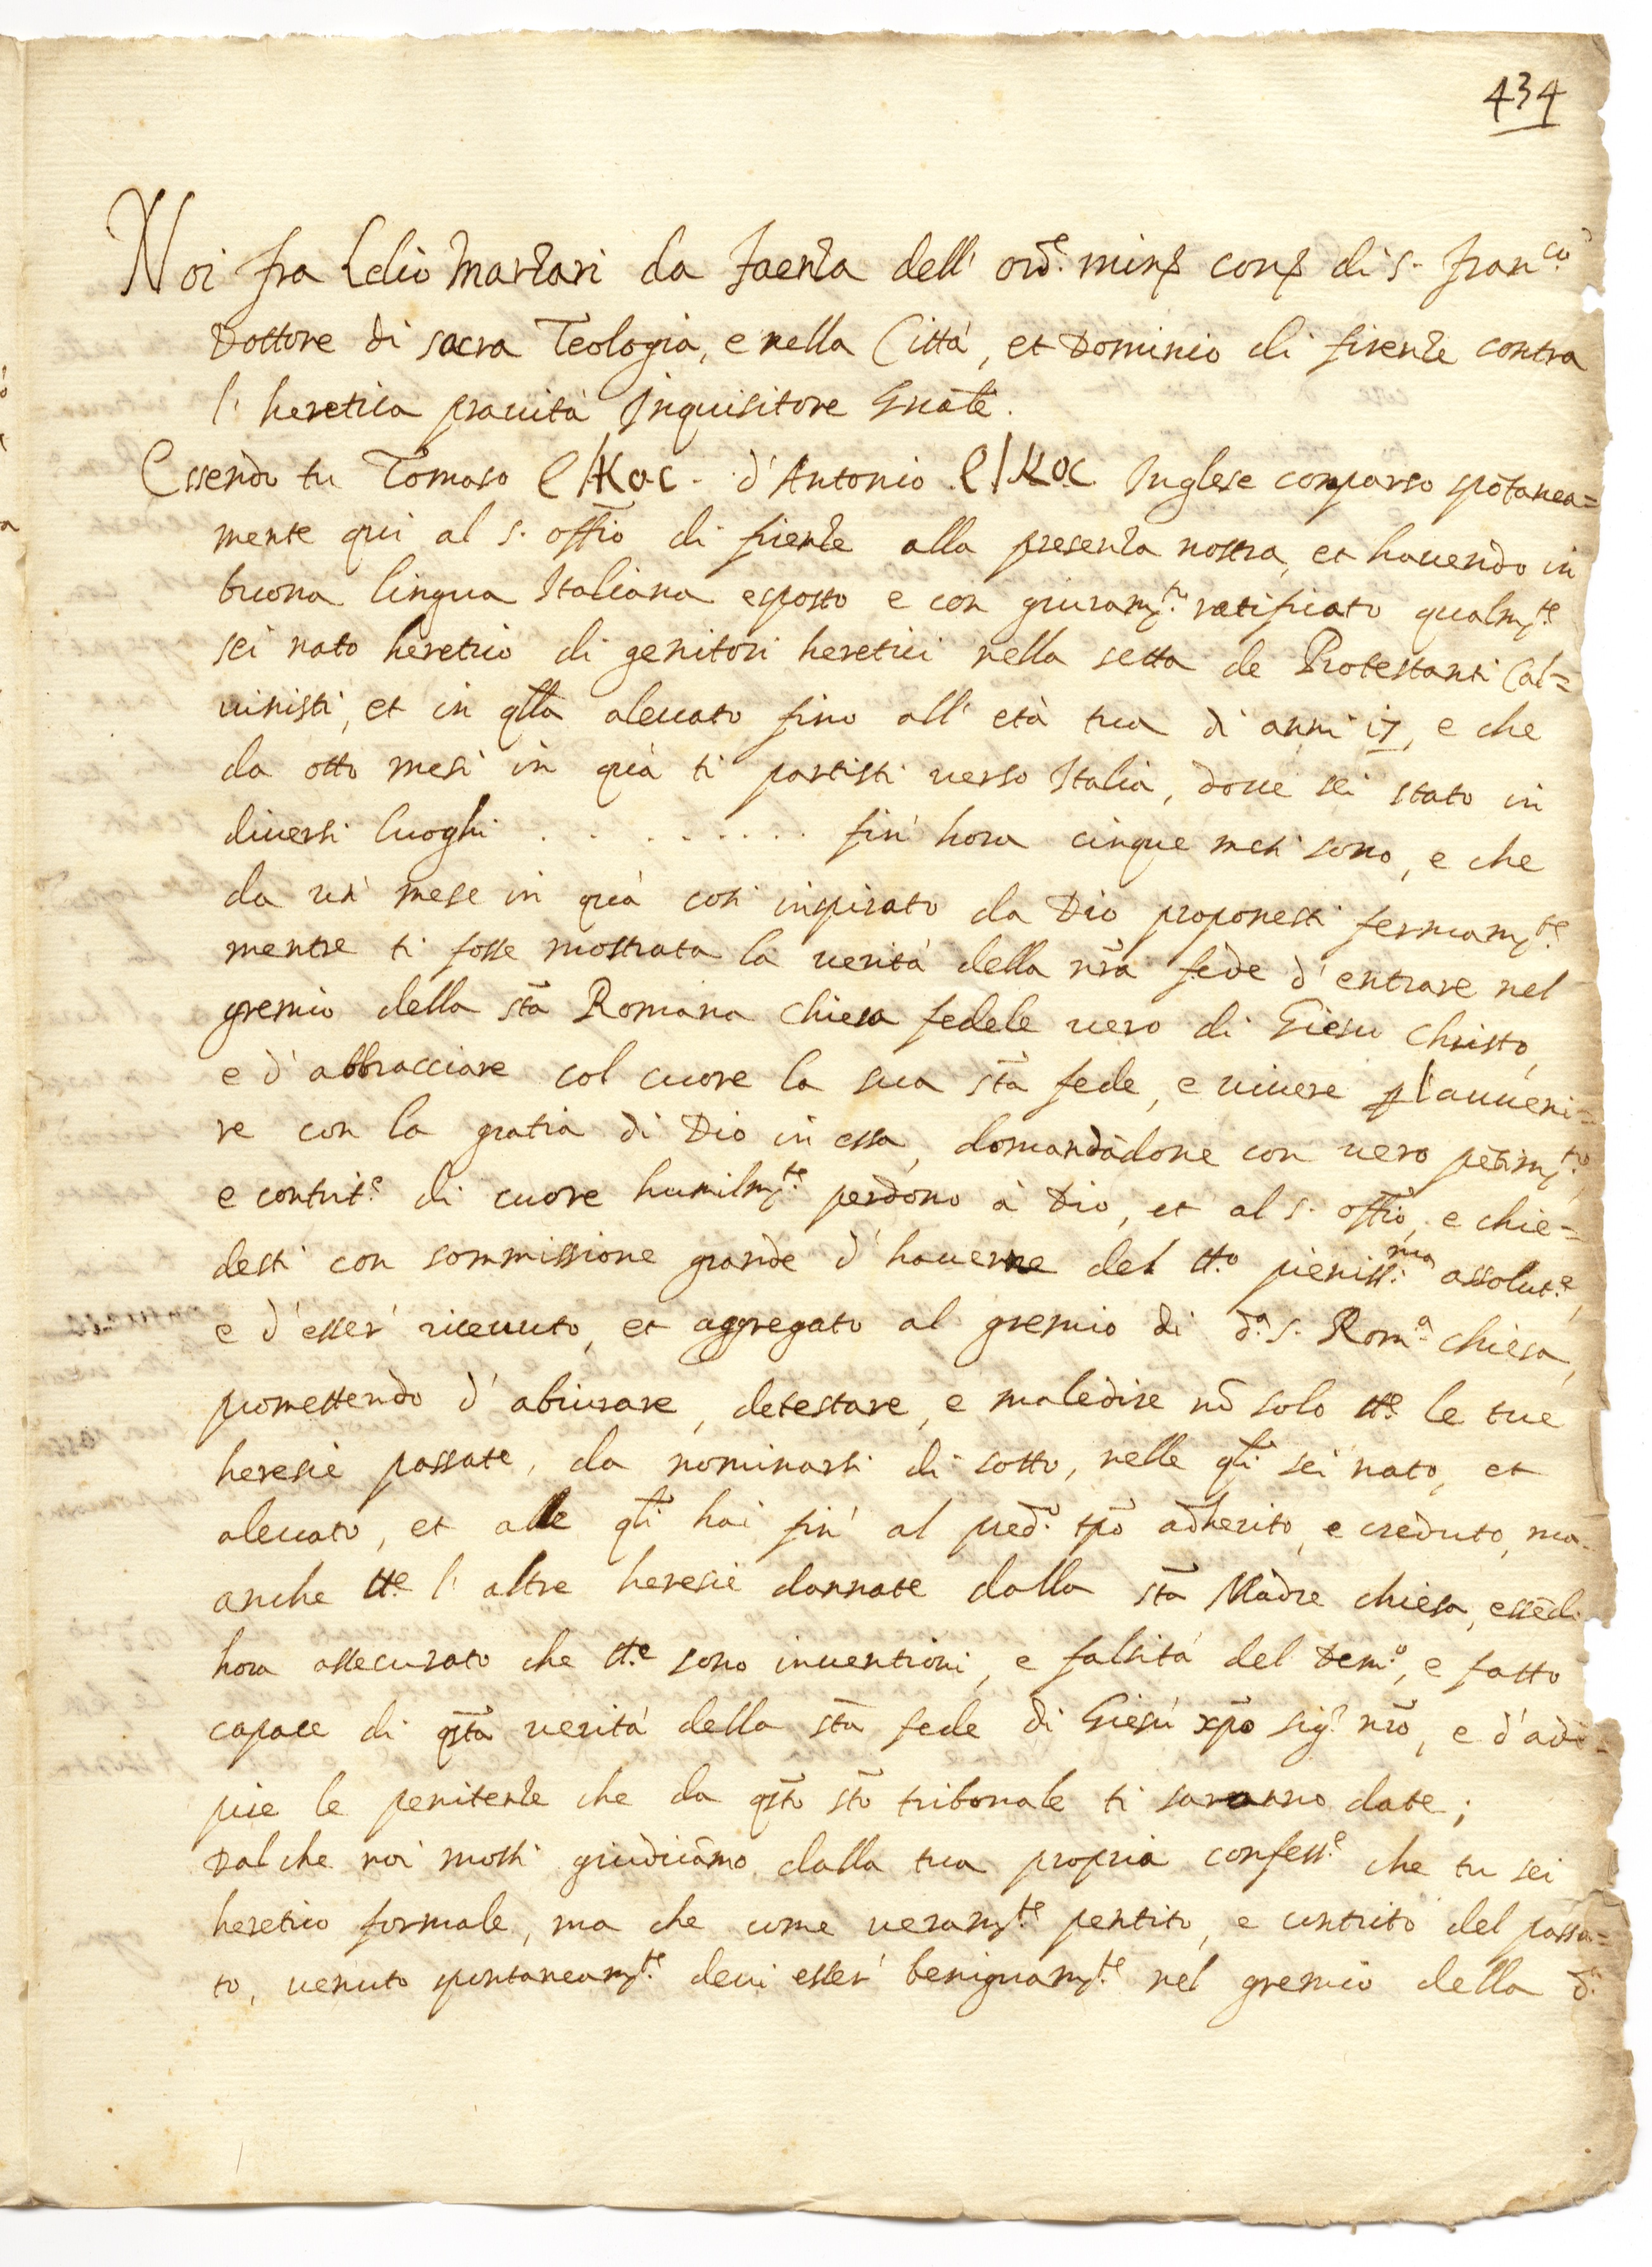 434
Noi fra Lelio Marzari da Faenza dell' ord.e min.i con.i di s. Fran.co
Dottore di sacra Teologia, e nella Città, et Dominio di firenze contra
l' heretica prauità Inquisitore Gnãle.
Essendo tu Tomaso d'Antonio Inglese comparso spõtanea=
mente qui al s. offio di fireze alla presenza nostra, et hauendo in
buona lingua Italiana esposto e con giuram.to ratificato qualm.te
sei nato heretico di genitori heretici nella setta de Protestanti Cal=
uinisti, et in qlla aleuato fino all' età tua di anni 17, e che
da otto mesi in quà ti partisti uerso Italia, doue sei stato in
diuersi luoghi . . . . . . . . . fin' hora cinque mesi sono, e che
da un' mese in quà così inspirato da Dio proponesti fermam.te
mentre ti fosse mostrata la uerità della nrã fede d'entrare nel
gremio della stã Romana Chiesa fedele uero di Giesu Christo,
e d'abbracciare col cuore la sua stã fede, e uiuere p l'auueni=
re con la gratia di Dio in essa, domandãdone con uero pẽtim.to,
e contrit.e di cuore humilm.te perdono à Dio, et al s. offio, e chie=
desti con sommissione grande d'hauerne del tt.o pieniss.ma assolut.e,
e d'esser' riceuuto, et aggregato al gremio di d.a s. Rom.a chiesa,
promettendo d'abiurare, detestare, e maledire nõ solo tt.e le tue
heresie passate, da nominarsi di sotto, nelle qli sei nato, et
aleuato, et alle qli hai fin' al pred.o tpõ adherito, e creduto, ma
anche tt.e l'altre heresie dannate dalla stã Madre chiesa, essẽdo
hora assecurato che tt.e sono inuentioni, e falsità del Dem.o, e fatto
capace di qstã uerità della stã fede di Giesù xpõ sig.r nrõ, e d'adẽ=
pire le penitenze che da qstõ stõ tribunale ti saranno date;
Dal che noi mossi giudichiamo dalla tua propria confess.e che tu sei
heretico formale, ma che come ueram.te pentito, e contrito del passa=
to, uenuto spontaneam.te deui esser' benignam.te nel gremio della d.a